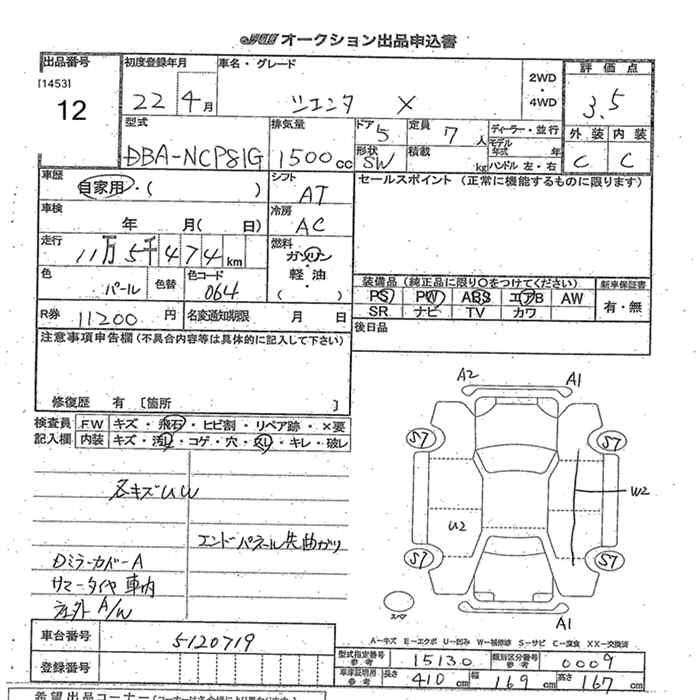 オークション出品申込書
出品番号
[1453]
12
初度登録年月
22年 4月
車名・グレード
シエンタ X
2WD
・
4WD
評価点
3.5
外装 内装
C C
型式
DBA-NCP81G
排気量
1500cc
ドア 5
形状 SW
定員 7人
積載 kg
ディーラー・並行
モデル年式 年
ハンドル 左・右
車歴
自家用・( )
シフト
AT
セールスポイント (正常に機能するものに限ります)
車検
年 月( 日)
冷房
AC
走行
11万5千474km
燃料
ガソリン
・
軽油
・
( )
色
パール
色替
色コード
064
装備品(純正品に限り○をつけてください)
PS PW ABS エアB AW
SR ナビ TV カワ
新車保証書
有・無
R券 11200円
名変通知期限 月 日
後日品
注意事項申告欄(不具合内容等は具体的に記入して下さい)
修復歴 有 [箇所 ]
検査員記入欄
FW キズ・飛石・ヒビ割・リペア跡・×要
内装 キズ・汚レ・コゲ・穴・スレ・キレ・破レ
各キズUW
エンドパネル先曲がり
DミラーカバーA
サマータイヤ車内
社外A/W
A2 A1
S7 S7
W2
U2
S7 S7
スペア
A1
A-キズ E-エクボ U-凹み W-補修跡 S-サビ C-腐食 XX-交換済
車台番号 5120719
登録番号
型式指定番号 参考 15130
類別区分番号 参考 0009
車庫証明用 参考 長さ 410cm 幅 169cm 高さ 167cm
希望出品コーナー